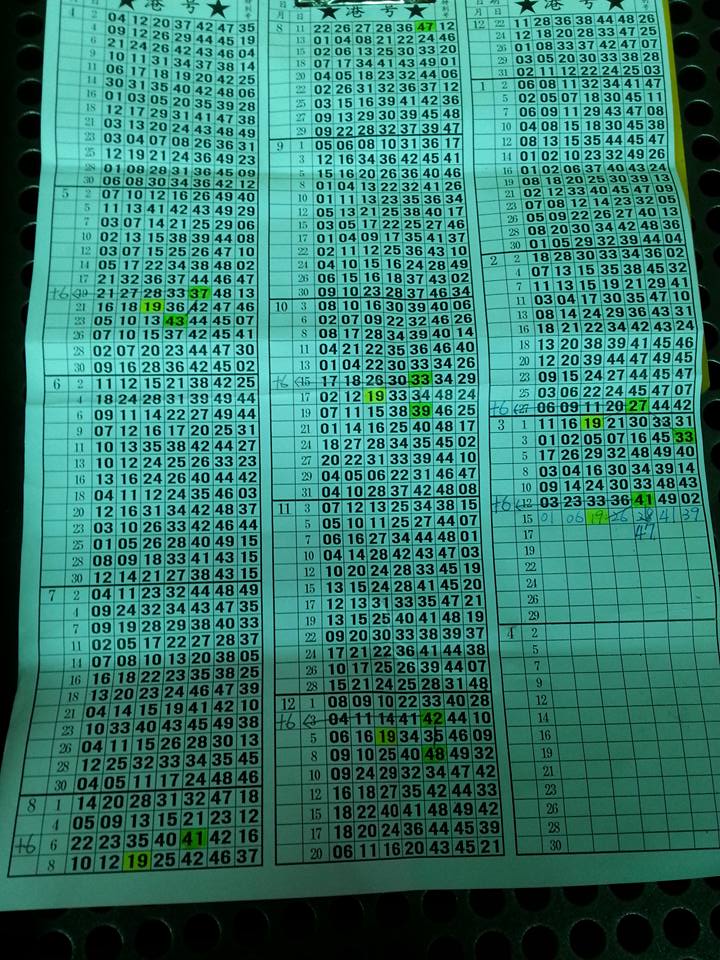 ★ 港 号 ★
4
04 12 20 37 42 47 35
4 09 12 26 29 44 45 19
6 21 24 26 42 43 46 04
9 10 11 31 34 37 38 14
11 06 17 18 19 20 42 25
14 30 31 35 40 42 48 06
16 01 03 05 20 35 39 28
18 12 17 29 31 41 47 38
21 03 13 20 24 43 48 49
23 03 04 07 08 26 36 31
25 12 19 21 24 36 49 23
28 01 08 28 31 36 45 09
30 06 08 30 34 36 42 12
5 2 07 10 12 16 26 49 40
5 11 13 41 42 43 49 29
7 03 07 14 21 25 29 06
10 02 13 15 38 39 44 08
12 03 07 15 25 26 47 10
14 05 17 22 34 38 48 02
17 21 32 36 37 44 46 47
+6 21 27 28 33 37 48 13
21 16 18 19 36 42 47 46
23 05 10 13 43 44 45 07
26 07 10 15 37 42 45 41
28 02 07 20 23 44 47 30
30 09 16 28 36 42 45 02
6 2 11 12 15 21 38 42 25
4 18 24 28 31 39 49 44
6 09 11 14 22 27 49 44
9 07 12 16 17 20 25 31
11 10 13 35 38 42 44 27
13 10 12 24 25 26 33 23
16 13 16 24 26 40 44 42
18 04 11 12 24 35 46 03
20 12 16 31 34 42 48 37
23 03 10 26 33 42 46 44
25 01 05 26 28 40 49 15
28 08 09 18 33 41 43 15
30 12 14 21 27 38 43 15
7 2 04 11 23 32 44 48 49
4 09 24 32 34 43 47 35
7 09 19 28 29 38 40 33
11 02 05 17 22 27 28 37
14 07 08 10 13 20 38 05
16 16 18 22 23 35 38 25
18 13 20 23 24 46 47 39
21 04 14 15 19 41 42 10
23 10 33 40 43 45 49 38
26 04 11 15 26 28 30 13
28 12 25 32 33 34 35 45
30 04 05 11 17 24 48 46
8 1 14 20 28 31 32 47 18
4 05 09 13 15 21 23 12
+6 6 22 23 35 40 41 42 16
8 10 12 19 25 42 46 37
日 ★ 港 号 ★
8 11 22 26 27 28 36 47 12
13 01 04 08 21 22 24 46
15 02 06 13 25 30 33 20
18 07 17 34 41 43 49 01
20 04 05 18 23 32 44 06
22 02 26 31 32 36 37 12
25 03 15 16 39 41 42 36
27 09 13 29 30 39 45 48
29 09 22 28 32 37 39 47
9 1 05 06 08 10 31 36 17
3 12 16 34 36 42 45 41
5 15 16 20 26 36 40 46
8 01 04 13 22 32 41 26
10 01 11 13 23 35 36 34
12 05 13 21 25 38 40 17
15 03 05 17 22 25 27 46
17 01 04 09 17 35 41 37
22 02 11 12 25 36 43 10
24 04 10 15 16 24 28 49
26 06 15 16 18 37 43 02
30 09 10 23 28 37 46 34
10 3 08 10 16 30 39 40 06
6 02 07 09 22 32 46 26
8 08 17 28 34 39 40 14
11 04 21 22 35 36 46 40
13 01 04 22 30 33 34 26
+6 15 17 18 26 30 33 34 29
17 02 12 19 33 34 48 24
19 07 11 15 38 39 46 25
21 01 14 16 25 40 48 17
24 18 27 28 34 35 45 02
27 20 22 31 33 39 44 10
29 04 05 06 22 31 46 47
31 04 10 28 37 42 48 08
11 3 07 12 13 25 34 38 15
5 05 10 11 25 27 44 07
7 06 16 27 34 44 48 01
10 04 14 28 42 43 47 03
12 10 20 24 28 33 45 19
15 13 15 24 28 41 45 20
17 12 13 31 33 35 47 21
19 13 15 25 40 41 48 19
22 09 20 30 33 38 39 37
24 17 21 22 36 41 44 38
26 10 17 25 26 39 44 07
28 15 21 24 25 28 31 48
12 1 08 09 10 22 33 40 28
+6 3 04 11 14 41 42 44 10
5 06 16 19 34 35 46 09
8 09 10 25 40 48 49 32
10 09 24 29 32 34 47 42
12 16 18 27 35 42 44 33
15 18 22 40 41 48 49 42
17 18 20 24 36 44 45 39
20 06 11 16 20 43 45 21
月 日 ★ 港 号 ★
12 22 11 28 36 38 44 48 26
24 12 18 20 28 33 47 25
26 01 08 33 37 42 47 07
29 03 05 20 30 33 38 28
31 02 11 12 22 24 25 03
1 2 06 08 11 32 34 41 47
5 02 05 07 18 30 45 11
7 06 09 11 29 43 47 08
10 04 08 15 18 30 45 38
12 08 13 15 35 44 45 47
14 01 02 10 23 32 49 26
16 01 02 06 37 40 43 24
19 08 18 20 25 30 39 13
21 02 12 33 40 45 47 09
23 07 08 12 14 23 32 05
26 05 09 22 26 27 40 13
28 08 20 30 34 42 48 36
30 01 05 29 32 39 44 04
2 2 18 28 30 33 34 36 02
4 07 13 15 35 38 45 32
7 11 13 15 19 21 29 41
11 03 04 17 30 35 47 10
13 08 14 24 29 36 43 31
16 18 21 22 34 42 43 24
18 13 20 38 39 41 45 46
20 12 20 39 44 47 49 45
23 09 15 24 27 44 45 47
25 03 06 22 24 45 47 07
+6 27 06 09 11 20 27 44 42
3 1 11 16 19 21 30 33 31
3 01 02 05 07 16 45 33
5 17 26 29 32 48 49 40
8 03 04 16 30 34 39 14
10 09 14 24 30 33 48 43
+6 12 03 23 33 36 41 49 02
15 01 06 19 26 28 41 39
17 47
19
22
24
26
29
4 2
5
7
9
12
14
16
19
21
23
26
28
30